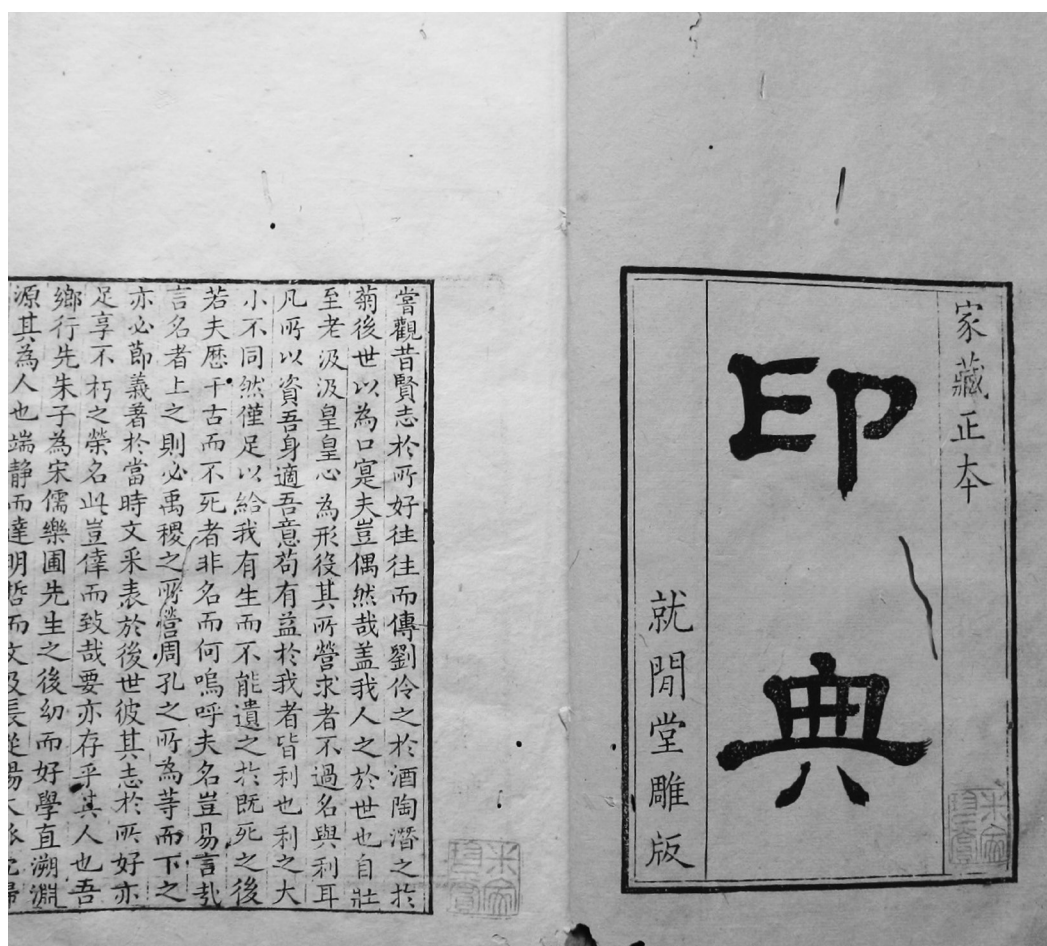 家藏正本
印典
就閒堂雕版
嘗觀昔賢志於所好往往而傳劉伶之於酒陶潛之於
菊後世以為口寔夫豈偶然哉盖我人之於世也自壯
至老汲汲皇皇心為形役其所營求者不過名與利耳
凡所以資吾身適吾意苟有益於我者皆利也利之大
小不同然僅足以給我有生而不能遺之於既死之後
若夫歷千古而不死者非名而何嗚呼夫名豈易言哉
言名者上之則必禹稷之所營周孔之所為等而下之
亦必節義著於當時文采表於後世彼其志於所好亦
足享不朽之榮名此豈倖而致哉要亦存乎其人也吾
鄉行先朱子為宋儒樂圃先生之後幼而好學直溯淵
源其為人也端静而達明哲而文及長從